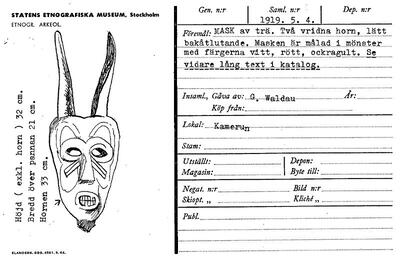 STATENS ETNOGRAFISKA MUSEUM, Stockholm
ETNOGR. ARKEOL.
Höjd ( exkl. horn ) 32 cm.
Bredd över pannan 21 cm.
Hornen 33 cm.
Gen. n:r
Saml. n:r
Dep. n:r
1919. 5. 4.
Föremål: MASK av trä. Två vridna horn, lätt
bakåtlutande. Masken är målad i mönster
med färgerna vitt, rött, ockragult. Se
vidare lång text i katalog.
Insaml., Gåva av: G. Waldau
År:
Köp från:
Lokal: Kamerun
Stam:
Utställt:
Depon:
Magasin:
Byte till:
Negat. n:r
Bild n:r
Skiopt. „
Kliché „
Publ.